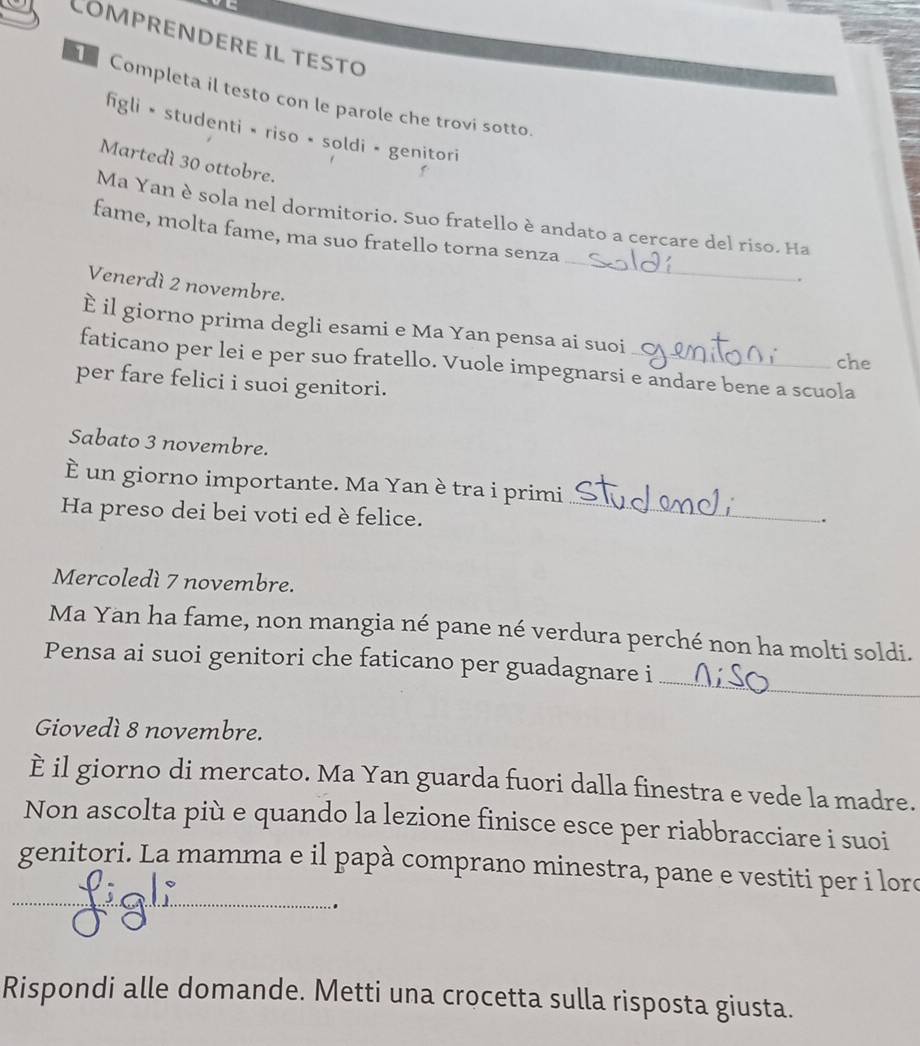 COMPRENDERE IL TESTO
1 Completa il testo con le parole che trovi sotto.
figli • studenti • riso • soldi • genitori
Martedì 30 ottobre.
Ma Yan è sola nel dormitorio. Suo fratello è andato a cercare del riso. Ha
fame, molta fame, ma suo fratello torna senza soldi.
Venerdì 2 novembre.
È il giorno prima degli esami e Ma Yan pensa ai suoi genitori che
faticano per lei e per suo fratello. Vuole impegnarsi e andare bene a scuola
per fare felici i suoi genitori.
Sabato 3 novembre.
È un giorno importante. Ma Yan è tra i primi studendi.
Ha preso dei bei voti ed è felice.
Mercoledì 7 novembre.
Ma Yan ha fame, non mangia né pane né verdura perché non ha molti soldi.
Pensa ai suoi genitori che faticano per guadagnare i riso
Giovedì 8 novembre.
È il giorno di mercato. Ma Yan guarda fuori dalla finestra e vede la madre.
Non ascolta più e quando la lezione finisce esce per riabbracciare i suoi
genitori. La mamma e il papà comprano minestra, pane e vestiti per i loro
figli.
Rispondi alle domande. Metti una crocetta sulla risposta giusta.